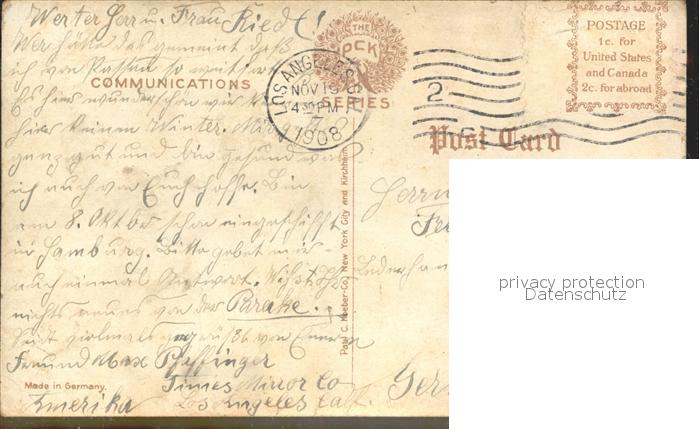 Werter Herr u. Frau Riedl!
Wer hätte das gemeint daß
ich von Passau so weit
COMMUNICATIONS
Es hier wunderschön wir
hier keinen Winter. Mir
ganz gut und bin gesund was
ich auch von Euch hoffe. Bin
am 8. Oktober schon eingeschifft
in Hamburg. Bitte gebet mir
auch einmal Antwort. Wißt Ihr
nichts neues von der
Seid vielmals gegrüßt von Euren
Freund Max Pfaffinger
Made in Germany.
Times Mirror Co
Amerika Los Angeles Cal.
THE
PCK
SERIES
LOS ANGELES
NOV 19
4 30 PM
1908
2
POSTAGE
1c. for
United States
and Canada
2c. for abroad
Post Card
Paul C. Koeber Co. New York City and Kirchheim
Herrn
Lederhan
Ger
privacy protection
Datenschutz